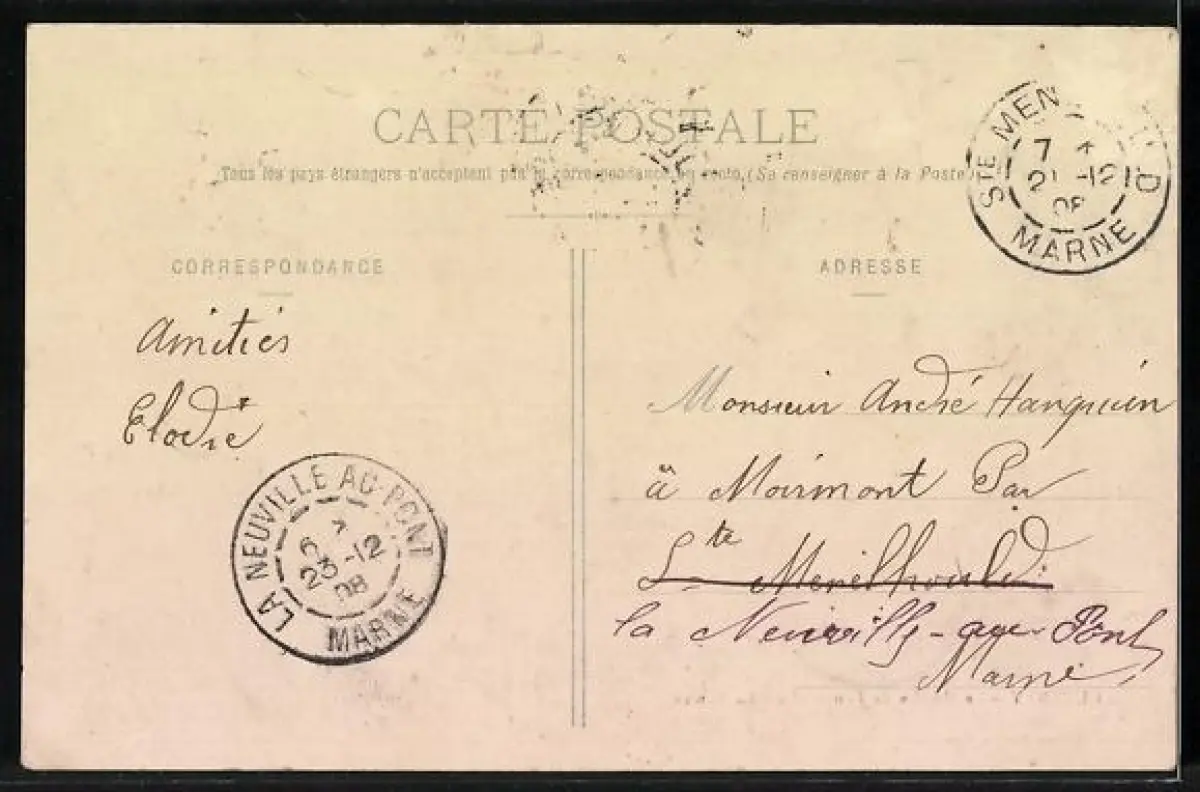 CARTE POSTALE
Tous les pays étrangers n'acceptent pas la correspondance au recto, (Se renseigner à la Poste)
CORRESPONDANCE
ADRESSE
Amitiés
Elodie
Monsieur André Hanquin
à Moirmont Par
Ste Menéhould
la Neuville-au-Pont
Marne
STE MEN D
7
21 -12
08
MARNE
LA NEUVILLE AU-PONT
6
23-12
08
MARNE